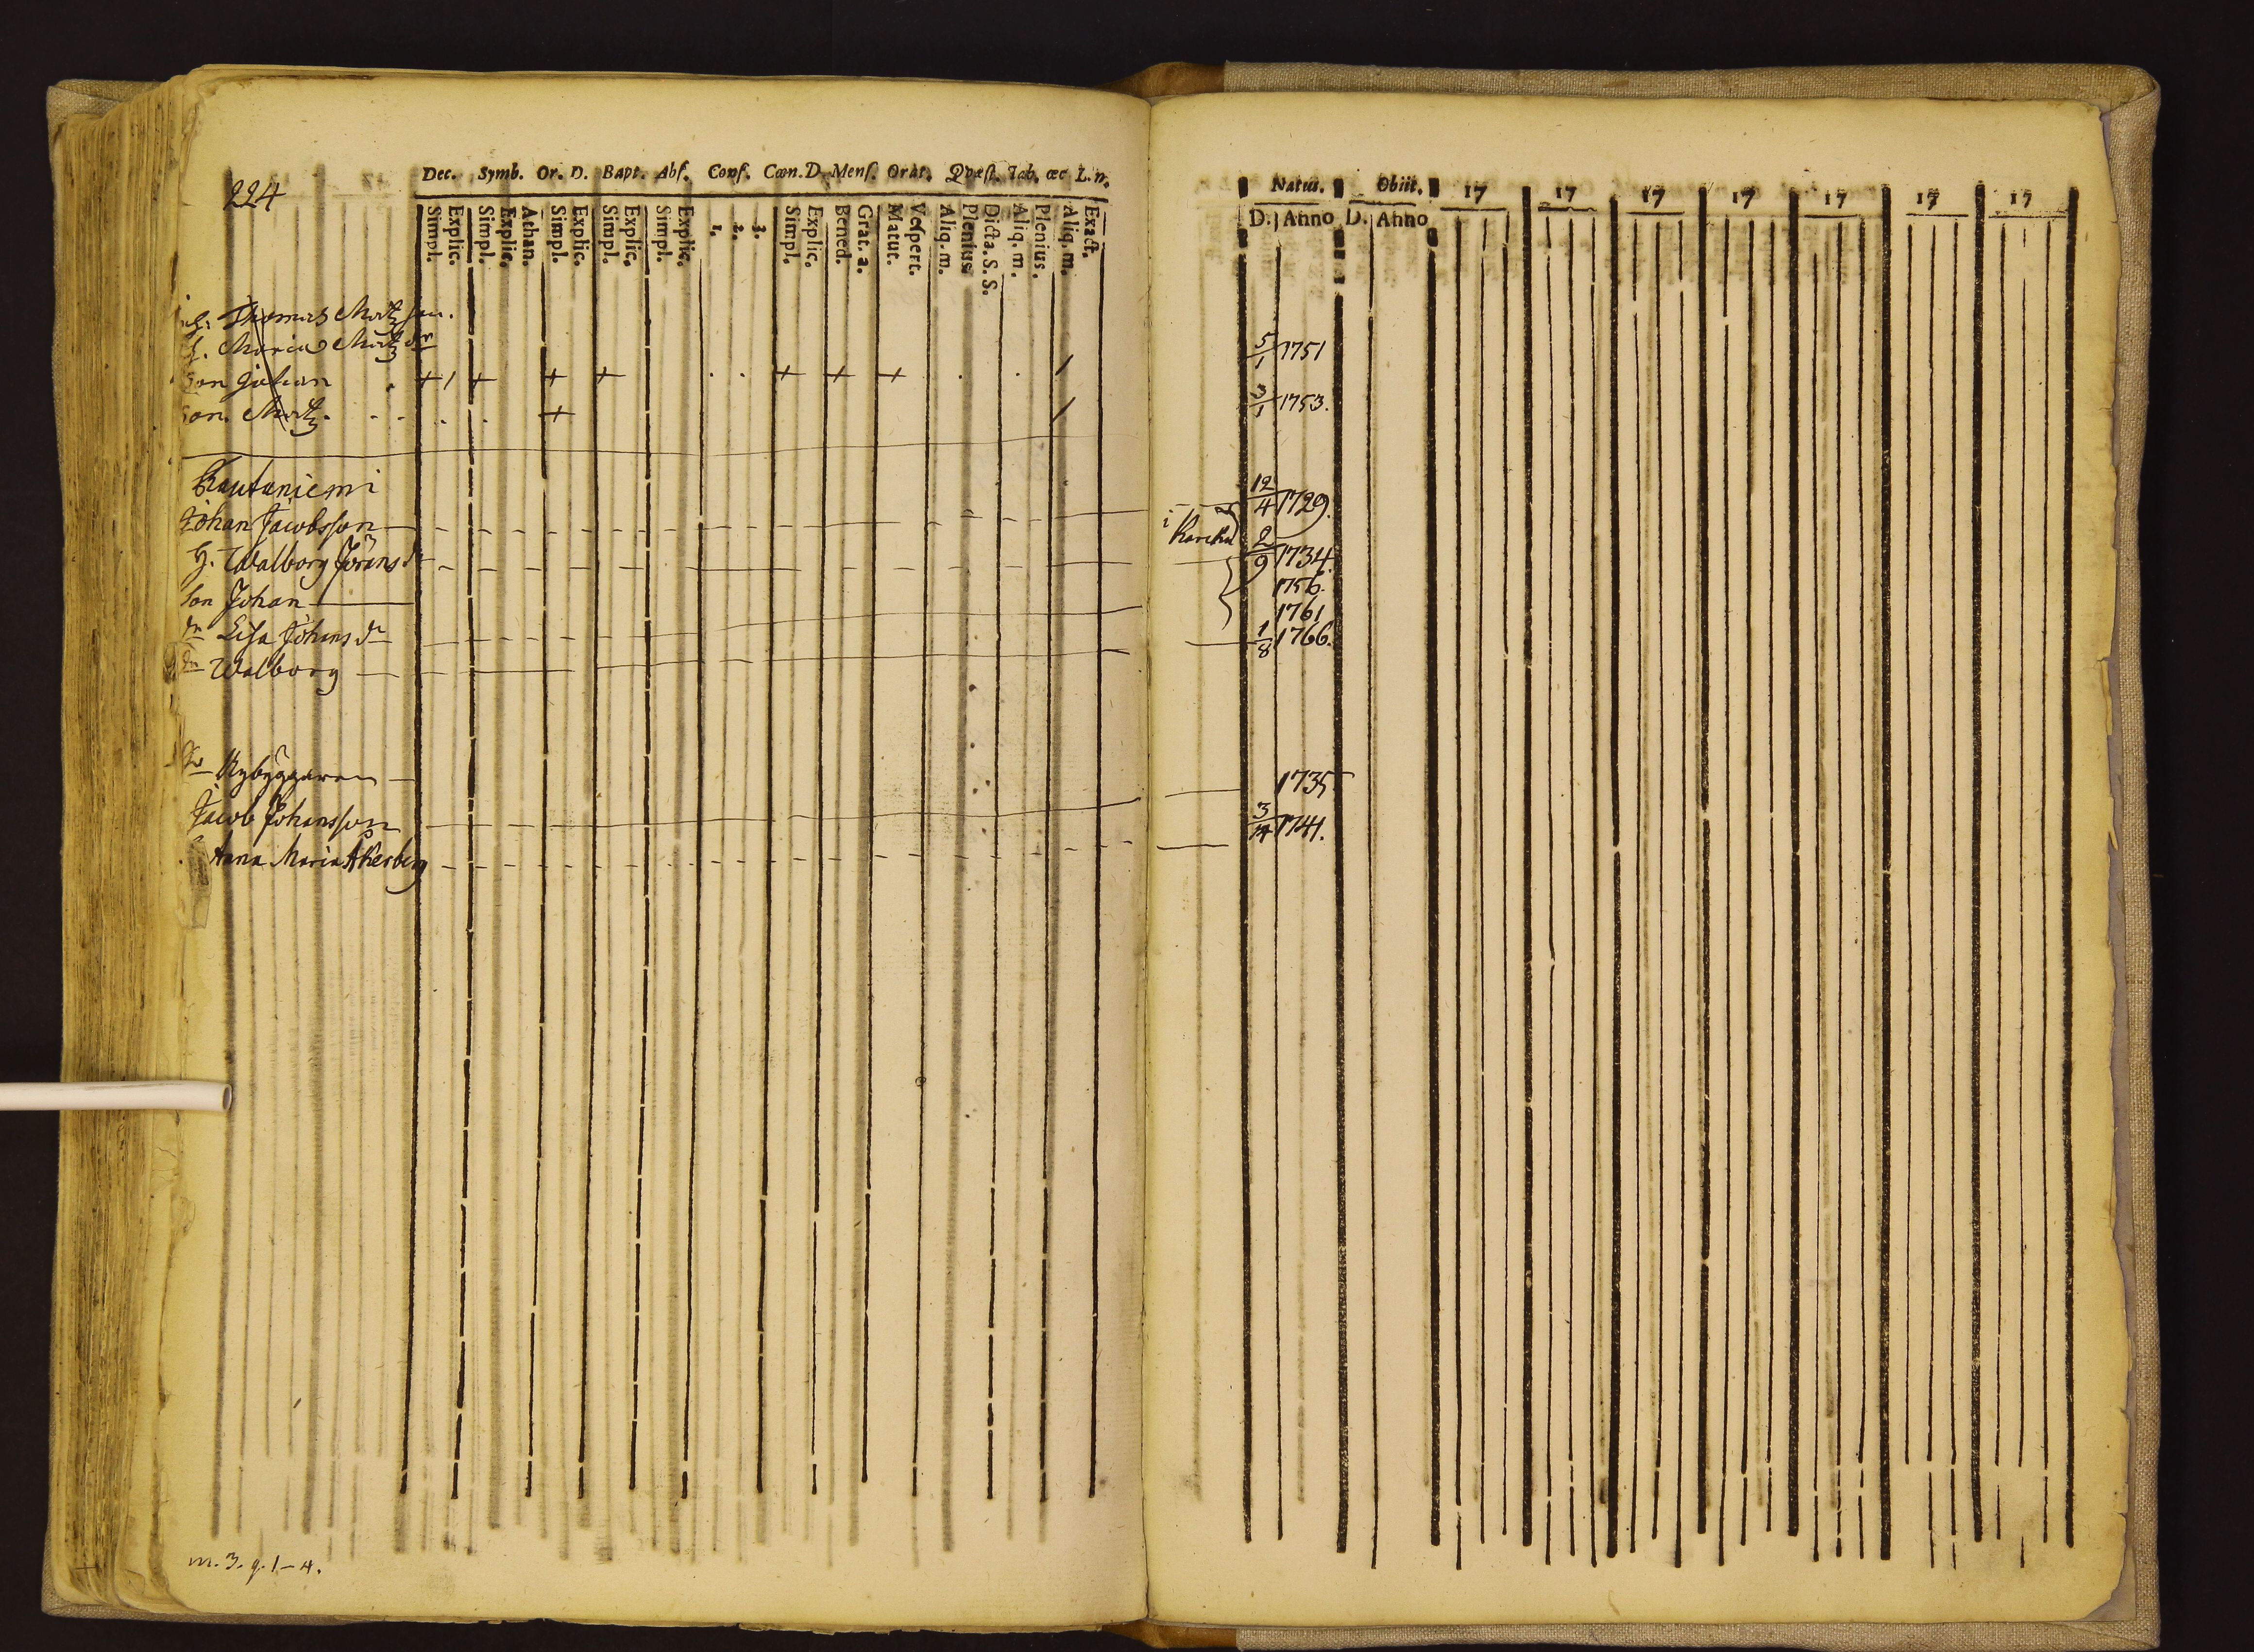 224
Dec. Symb. Or. D. Bapt. Abs. Conf. Cœn. D. Mens. Orat. Qvæst. Tab. œc L. n.
Simpl. Explic. Simpl. Explic. Athan. Simpl. Explic. Simpl. Explic. Simpl. Explic. 1. 2. 3. Simpl. Explic. Bened. Grat. a. Matut. Vespert. Aliq. m. Plenius. Dicta. S. S. Aliq. m. Plenius. Aliq. m. Exact.
Thomas Matzson.
H. Maria Matzdr
Son Johan
Son. Matz.
Rautaniemi
Johan Jacobsson
H. Walborg Jöransdr
Son Johan
dr Lisa Johansdr
dr Walborg
Nybyggaren
Jacob Johansson
Anna Maria Åkerberg
m. 3. q. 1-4.
Natus. Obiit. 17 17 17 17 17 17 17
D. Anno D. Anno
5/1 1751
3/1 1753.
12/4 1729.
i Karcku
2/9 1734.
1756.
1761
1/8 1766.
1735
3/4 1741.